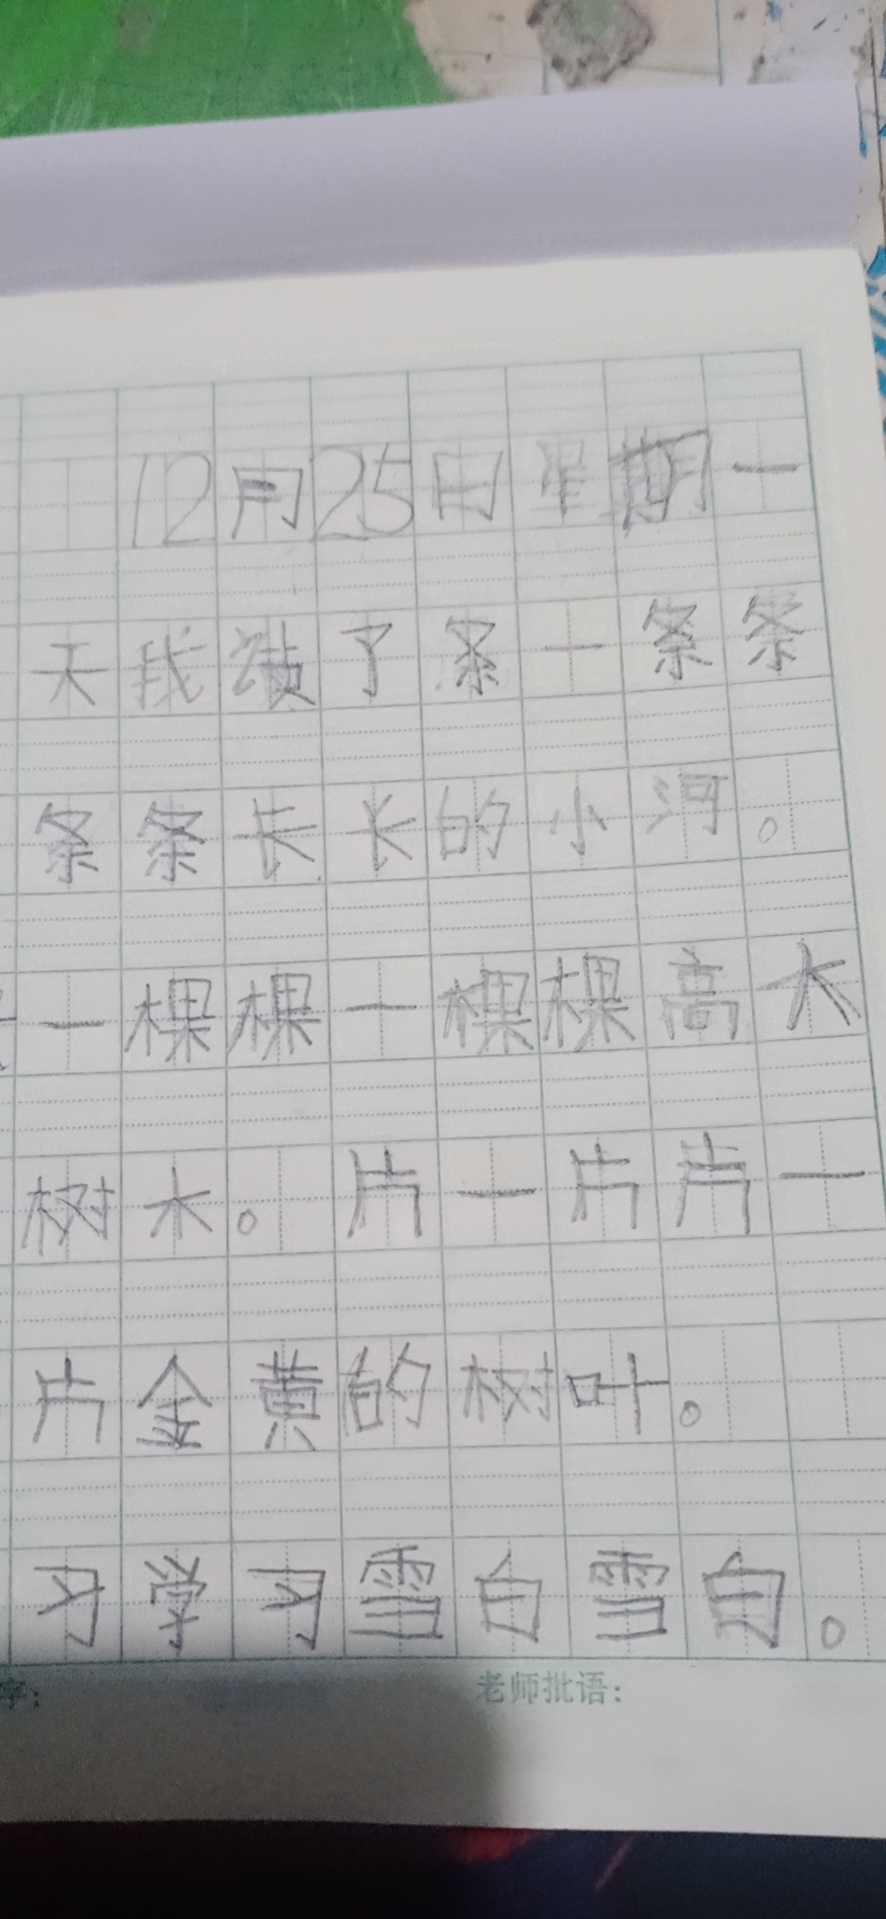 12月25日星期一
天我读了条一条条
条条长长的小河。
一棵棵一棵棵高大
树木。片一片片一
片金黄的树叶。
习学习雪白雪白。
字: 老师批语: